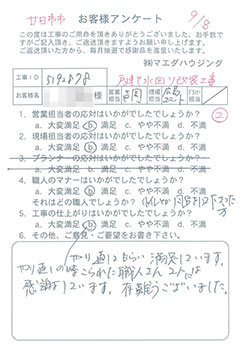 廿日市市 お客様アンケート 9/8
この度は工事のご用命を頂きありがとうございました。お手数で
すがご記入頂き、ご返送頂きますようお願い申し上げます。
ご返送頂いた方から、毎月抽選で感謝品を進呈致します。
㈱マエダハウジング
工事ID
お客様名 様 営業担当 現場担当 プランナー担当
1. 営業担当者の応対はいかがでしたでしょうか? ②
a. 大変満足 b. 満足 c. やや不満 d. 不満
2. 現場担当者の応対はいかがでしたでしょうか?
a. 大変満足 b. 満足 c. やや不満 d. 不満
3. プランナーの応対はいかがでしたでしょうか?
a. 大変満足 b. 満足 c. やや不満 d. 不満
4. 職人のマナーはいかがでしたでしょうか?
a. 大変満足 b. 満足 c. やや不満 d. 不満
それはどの職人でしょうか?
5. 工事の仕上がりはいかがでしたでしょうか?
a. 大変満足 b. 満足 c. やや不満 d. 不満
6. その他、ご意見・ご要望をお書き下さい。
やり直しをもらい 満足しています。
やり直しの時 こられた職人さん 2人には
感謝しています。有難うございました。